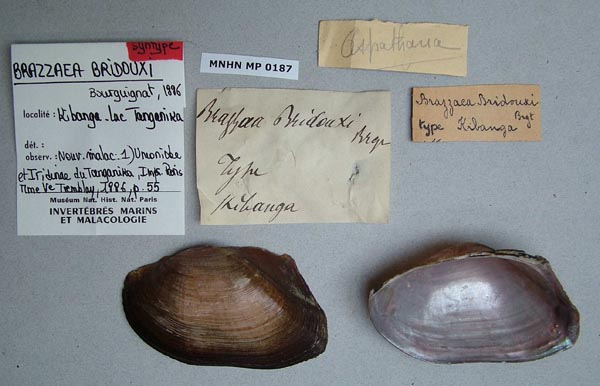 syntype
BRAZZAEA BRIDOUXI
Bourguignat, 1886
localité : Kibanga - Lac Tanganika
dét. :
observ. : Nouv. malac. 1) Unionidae
et Iridinae du Tanganika, Imp. Paris
Mme Ve Tremblay, 1886, p. 55
Muséum Nat. Hist. Nat. Paris
INVERTÉBRÉS MARINS
ET MALACOLOGIE
MNHN MP 0187
Brazzaea Bridouxi
Brgt
Type
Kibanga
Aspatharia
Brazzaea Bridouxi
Brgt
type Kibanga